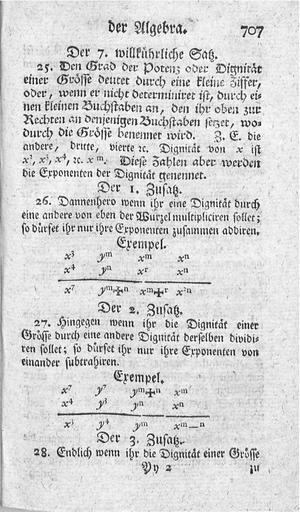 der Algebra. 707
Der 7. willkührliche Satz.
25. Den Grad der Potenz oder Dignität
einer Grösse deutet durch eine kleine Ziffer,
oder, wenn er nicht determiniret ist, durch ei-
nen kleinen Buchstaben an, den ihr oben zur
Rechten an denjenigen Buchstaben setzet, wo-
durch die Grösse benennet wird. Z. E. die
andere, dritte, vierte ꝛc. Dignität von x ist
x², x³, x⁴, ꝛc. xᵐ. Diese Zahlen aber werden
die Exponenten der Dignität genennet.
Der 1. Zusatz.
26. Dannenhero wenn ihr eine Dignität durch
eine andere von eben der Wurzel multipliciren sollet;
so dürfet ihr nur ihre Exponenten zusammen addiren.
Exempel.
x³ yᵐ xᵐ xⁿ
x⁴ yⁿ xʳ xⁿ
x⁷ yᵐ⁺ⁿ xᵐ⁺ʳ x²ⁿ
Der 2. Zusatz.
27. Hingegen wenn ihr die Dignität einer
Grösse durch eine andere Dignität derselben dividi-
ren sollet; so dürfet ihr nur ihre Exponenten von
einander subtrahiren.
Exempel.
x⁷ y⁷ yᵐ⁺ⁿ xᵐ
x⁴ y³ yⁿ xⁿ
x³ y⁴ yᵐ xᵐ⁻ⁿ
Der 3. Zusatz.
28. Endlich wenn ihr die Dignität einer Grösse
Yy 2 zu